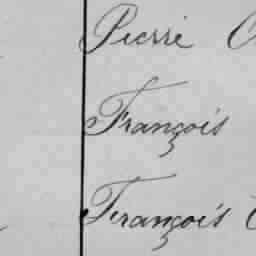 Pierre
François
François